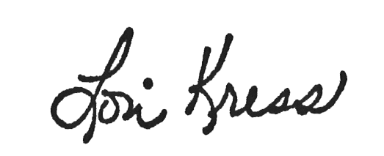 Lori Kress